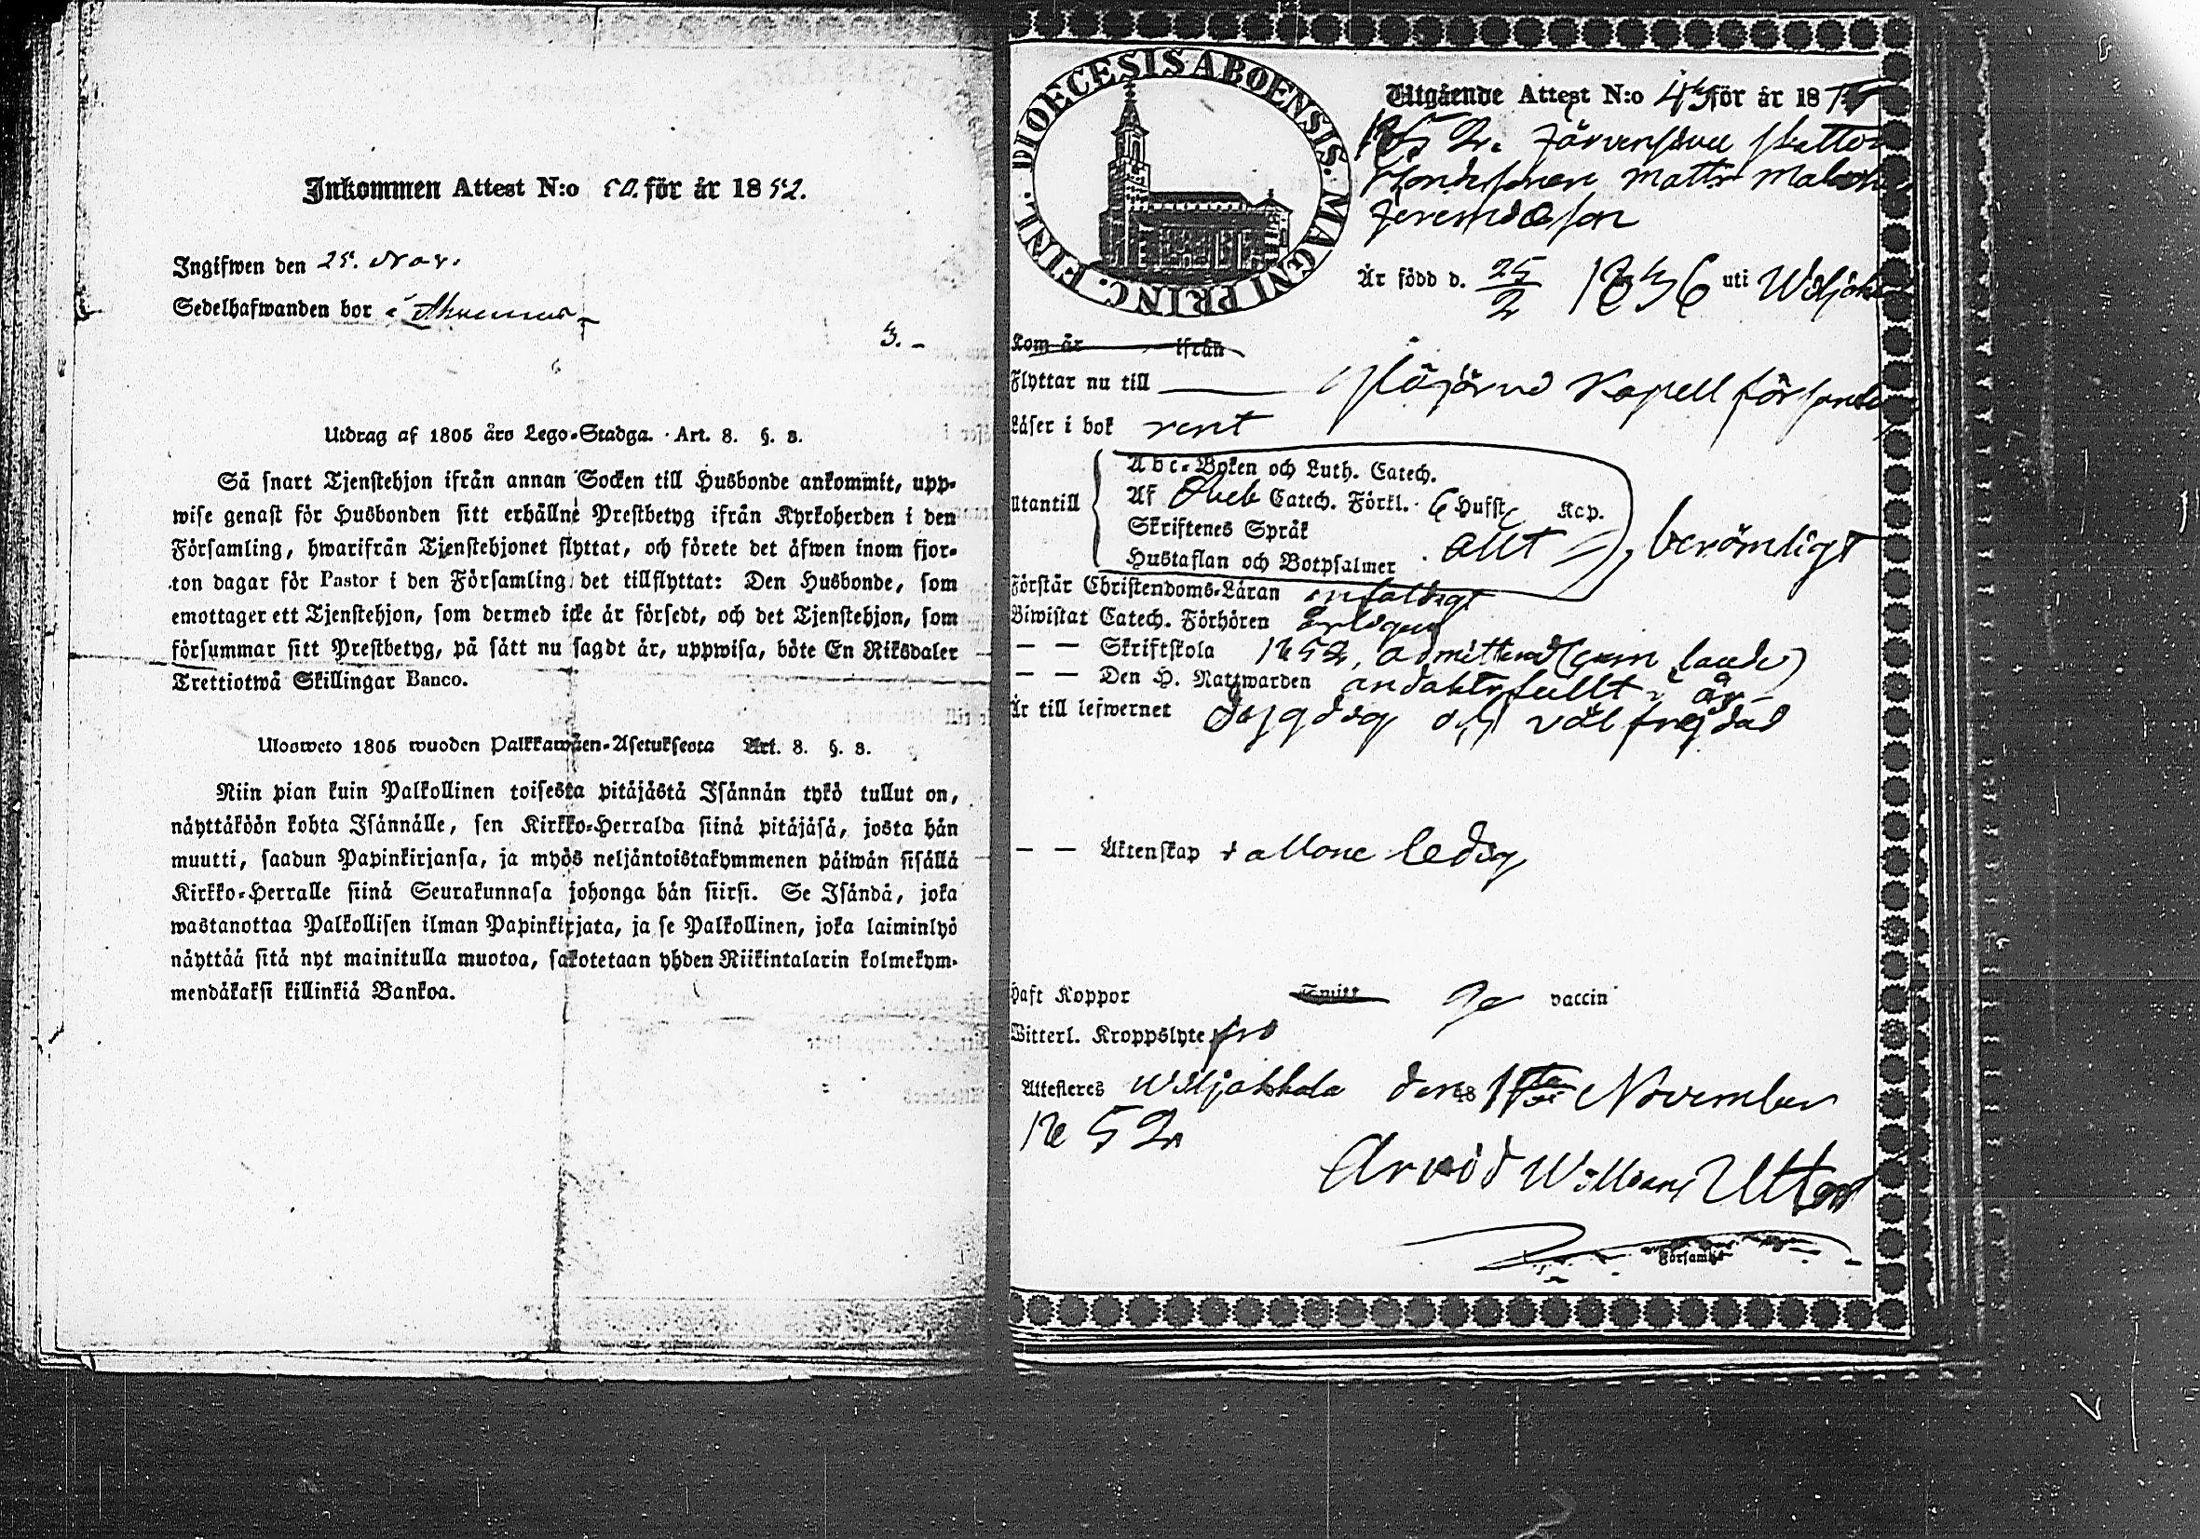 Inkommen Attest N:o 50. för år 1852.
Ingifwen den 25. Nov.
Sedelhafwanden bor i
3. –
Utdrag af 1805 års Lego-Stadga. Art. 8. §. 8.
Så snart Tjenstehjon ifrån annan Socken till Husbonde ankommit, upp-
wise genast för Husbonden sitt erhållne Prestbetyg ifrån Kyrkoherden i den
Församling, hwarifrån Tjenstehjonet flyttat, och förete det äfwen inom fjor-
ton dagar för Pastor i den Församling det tillflyttat: Den Husbonde, som
emottager ett Tjenstehjon, som dermed icke är försedt, och det Tjenstehjon, som
försummar sitt Prestbetyg, på sätt nu sagdt är, uppwisa, böte En Riksdaler
Trettiotwå Skillingar Banco.
Ulosweto 1805 wuoden Palkkawäen-Asetuksesta Art. 8. §. 8.
Niin pian kuin Palkollinen toisesta pitäjästä Isännän tykö tullut on,
näyttäköön kohta Isännälle, sen Kirkko-Herralda siinä pitäjäsä, josta hän
muutti, saadun Papinkirjansa, ja myös neljäntoistakymmenen päiwän sisällä
Kirkko-Herralle siinä Seurakunnasa johonga hän siirsi. Se Isändä, joka
wastanottaa Palkollisen ilman Papinkirjata, ja se Palkollinen, joka laiminlyö
näyttää sitä nyt mainitulla muotoa, sakotetaan yhden Riikintalarin kolmekym-
mendäkaksi killinkiä Bankoa.
DIOECESIS ABOENSIS. MAGNI PRINC. FINL.
Utgående Attest N:o för år 18
1852. Järvensivu
Bondesonen Matts
Jeremiasson
Är född d. 25/2 1836 uti Wiljak
Kom år ifrån
Flyttar nu till Ylöjärvi Kapell församl
Läser i bok rent
Utantill
Abc-Boken och Luth. Catech.
Af Sveb Catech. Förkl. 6 Hufst Kap.
Skriftenes Språk
Hustaflan och Botpsalmer allt berömligt
Förstår Christendoms-Läran enfaldigt
Biwistat Catech. Förhören årligen
— — Skriftskola 1852, admitterad (cum laude)
— — Den H. Nattwarden andaktsfullt – är
Är till lefwernet dygdig och välfrejdad
— — Äktenskap i allone ledig
Haft Koppor ja vaccin
Witterl. Kroppslyte fri
Attesteres Wiljakkala den 1sta November
1852.
Arvid William Utter
Församl:s